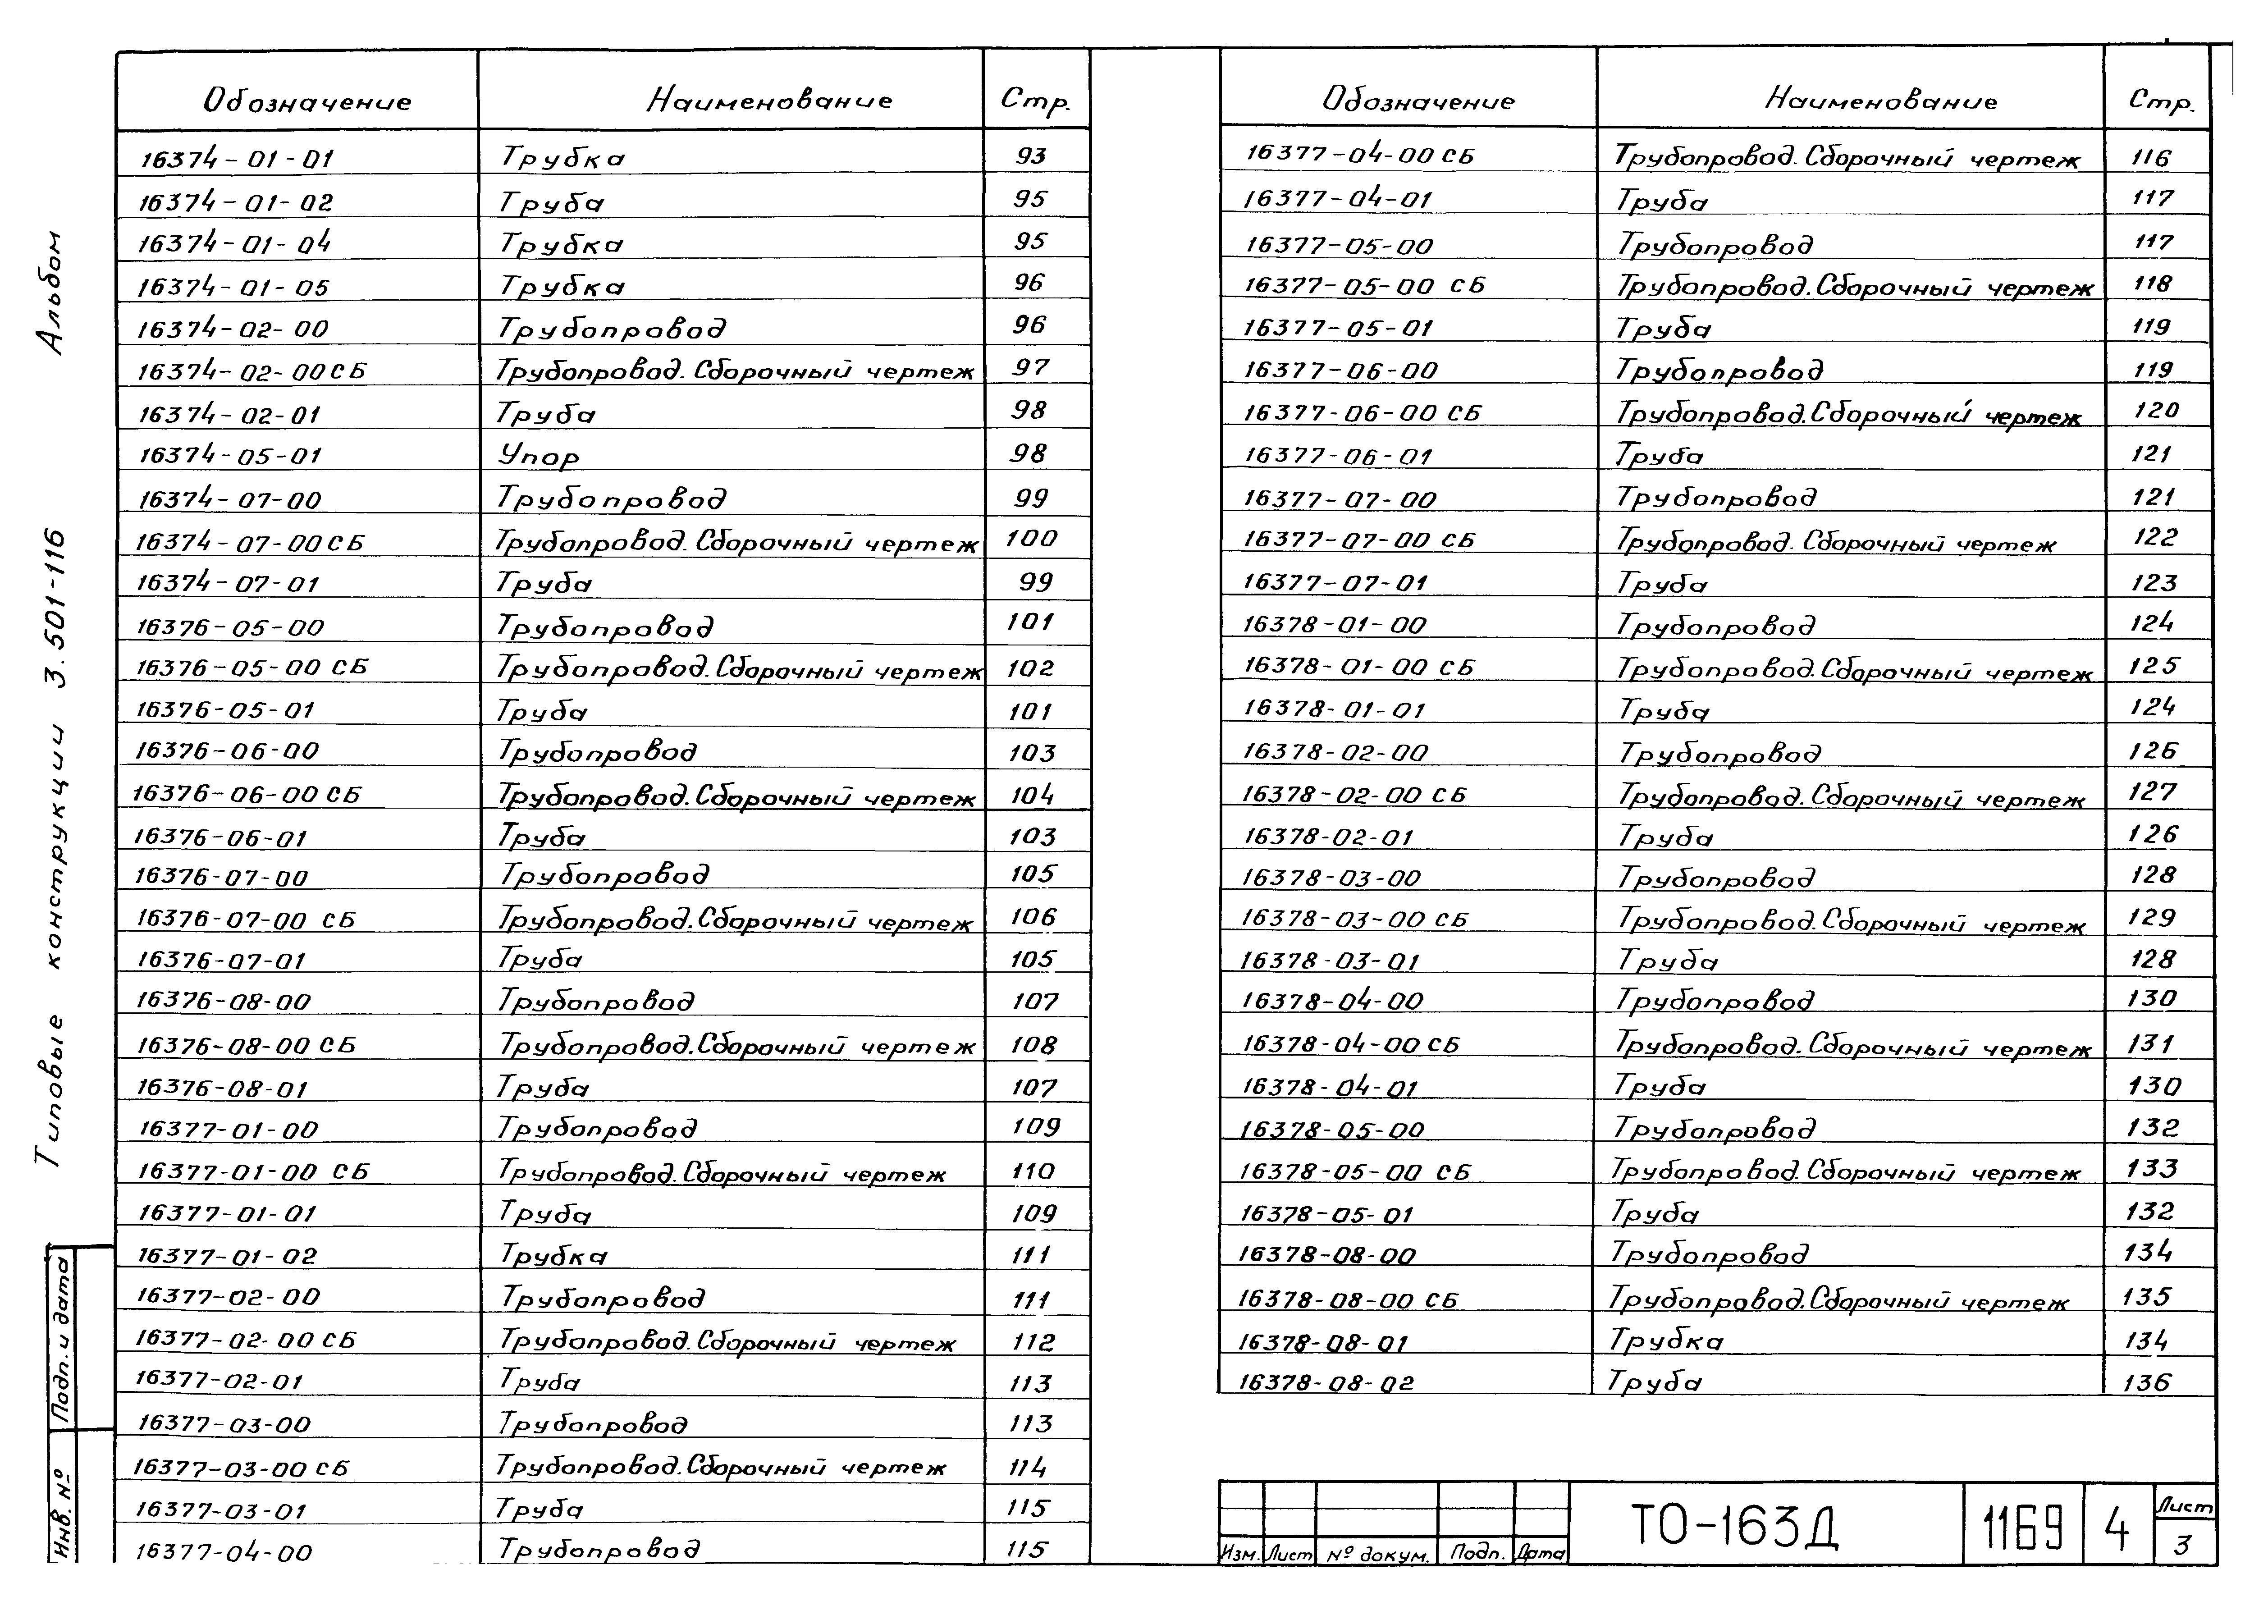 Альбом
Типовые конструкции 3.501-116
Подп. и дата
Инв. №
Обозначение Наименование Стр.
16374-01-01 Трубка 93
16374-01-02 Труба 95
16374-01-04 Трубка 95
16374-01-05 Трубка 96
16374-02-00 Трубопровод 96
16374-02-00 СБ Трубопровод. Сборочный чертеж 97
16374-02-01 Труба 98
16374-05-01 Упор 98
16374-07-00 Трубопровод 99
16374-07-00 СБ Трубопровод. Сборочный чертеж 100
16374-07-01 Труба 99
16376-05-00 Трубопровод 101
16376-05-00 СБ Трубопровод. Сборочный чертеж 102
16376-05-01 Труба 101
16376-06-00 Трубопровод 103
16376-06-00 СБ Трубопровод. Сборочный чертеж 104
16376-06-01 Труба 103
16376-07-00 Трубопровод 105
16376-07-00 СБ Трубопровод. Сборочный чертеж 106
16376-07-01 Труба 105
16376-08-00 Трубопровод 107
16376-08-00 СБ Трубопровод. Сборочный чертеж 108
16376-08-01 Труба 107
16377-01-00 Трубопровод 109
16377-01-00 СБ Трубопровод. Сборочный чертеж 110
16377-01-01 Труба 109
16377-01-02 Трубка 111
16377-02-00 Трубопровод 111
16377-02-00 СБ Трубопровод. Сборочный чертеж 112
16377-02-01 Труба 113
16377-03-00 Трубопровод 113
16377-03-00 СБ Трубопровод. Сборочный чертеж 114
16377-03-01 Труба 115
16377-04-00 Трубопровод 115
Обозначение Наименование Стр.
16377-04-00 СБ Трубопровод. Сборочный чертеж 116
16377-04-01 Труба 117
16377-05-00 Трубопровод 117
16377-05-00 СБ Трубопровод. Сборочный чертеж 118
16377-05-01 Труба 119
16377-06-00 Трубопровод 119
16377-06-00 СБ Трубопровод. Сборочный чертеж 120
16377-06-01 Труба 121
16377-07-00 Трубопровод 121
16377-07-00 СБ Трубопровод. Сборочный чертеж 122
16377-07-01 Труба 123
16378-01-00 Трубопровод 124
16378-01-00 СБ Трубопровод. Сборочный чертеж 125
16378-01-01 Труба 124
16378-02-00 Трубопровод 126
16378-02-00 СБ Трубопровод. Сборочный чертеж 127
16378-02-01 Труба 126
16378-03-00 Трубопровод 128
16378-03-00 СБ Трубопровод. Сборочный чертеж 129
16378-03-01 Труба 128
16378-04-00 Трубопровод 130
16378-04-00 СБ Трубопровод. Сборочный чертеж 131
16378-04-01 Труба 130
16378-05-00 Трубопровод 132
16378-05-00 СБ Трубопровод. Сборочный чертеж 133
16378-05-01 Труба 132
16378-08-00 Трубопровод 134
16378-08-00 СБ Трубопровод. Сборочный чертеж 135
16378-08-01 Трубка 134
16378-08-02 Труба 136
Изм. Лист № докум. Подп. Дата
ТО-163Д 1169 4 Лист 3